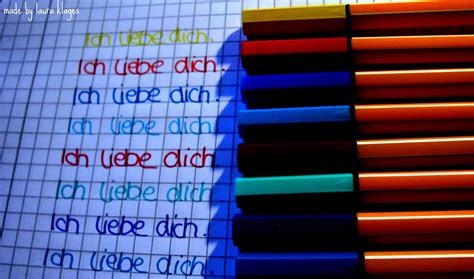 made by laura klages
Ich liebe dich.
Ich liebe dich.
Ich liebe dich.
Ich liebe dich.
Ich liebe dich.
Ich liebe dich.
Ich liebe dich.
Ich liebe dich.